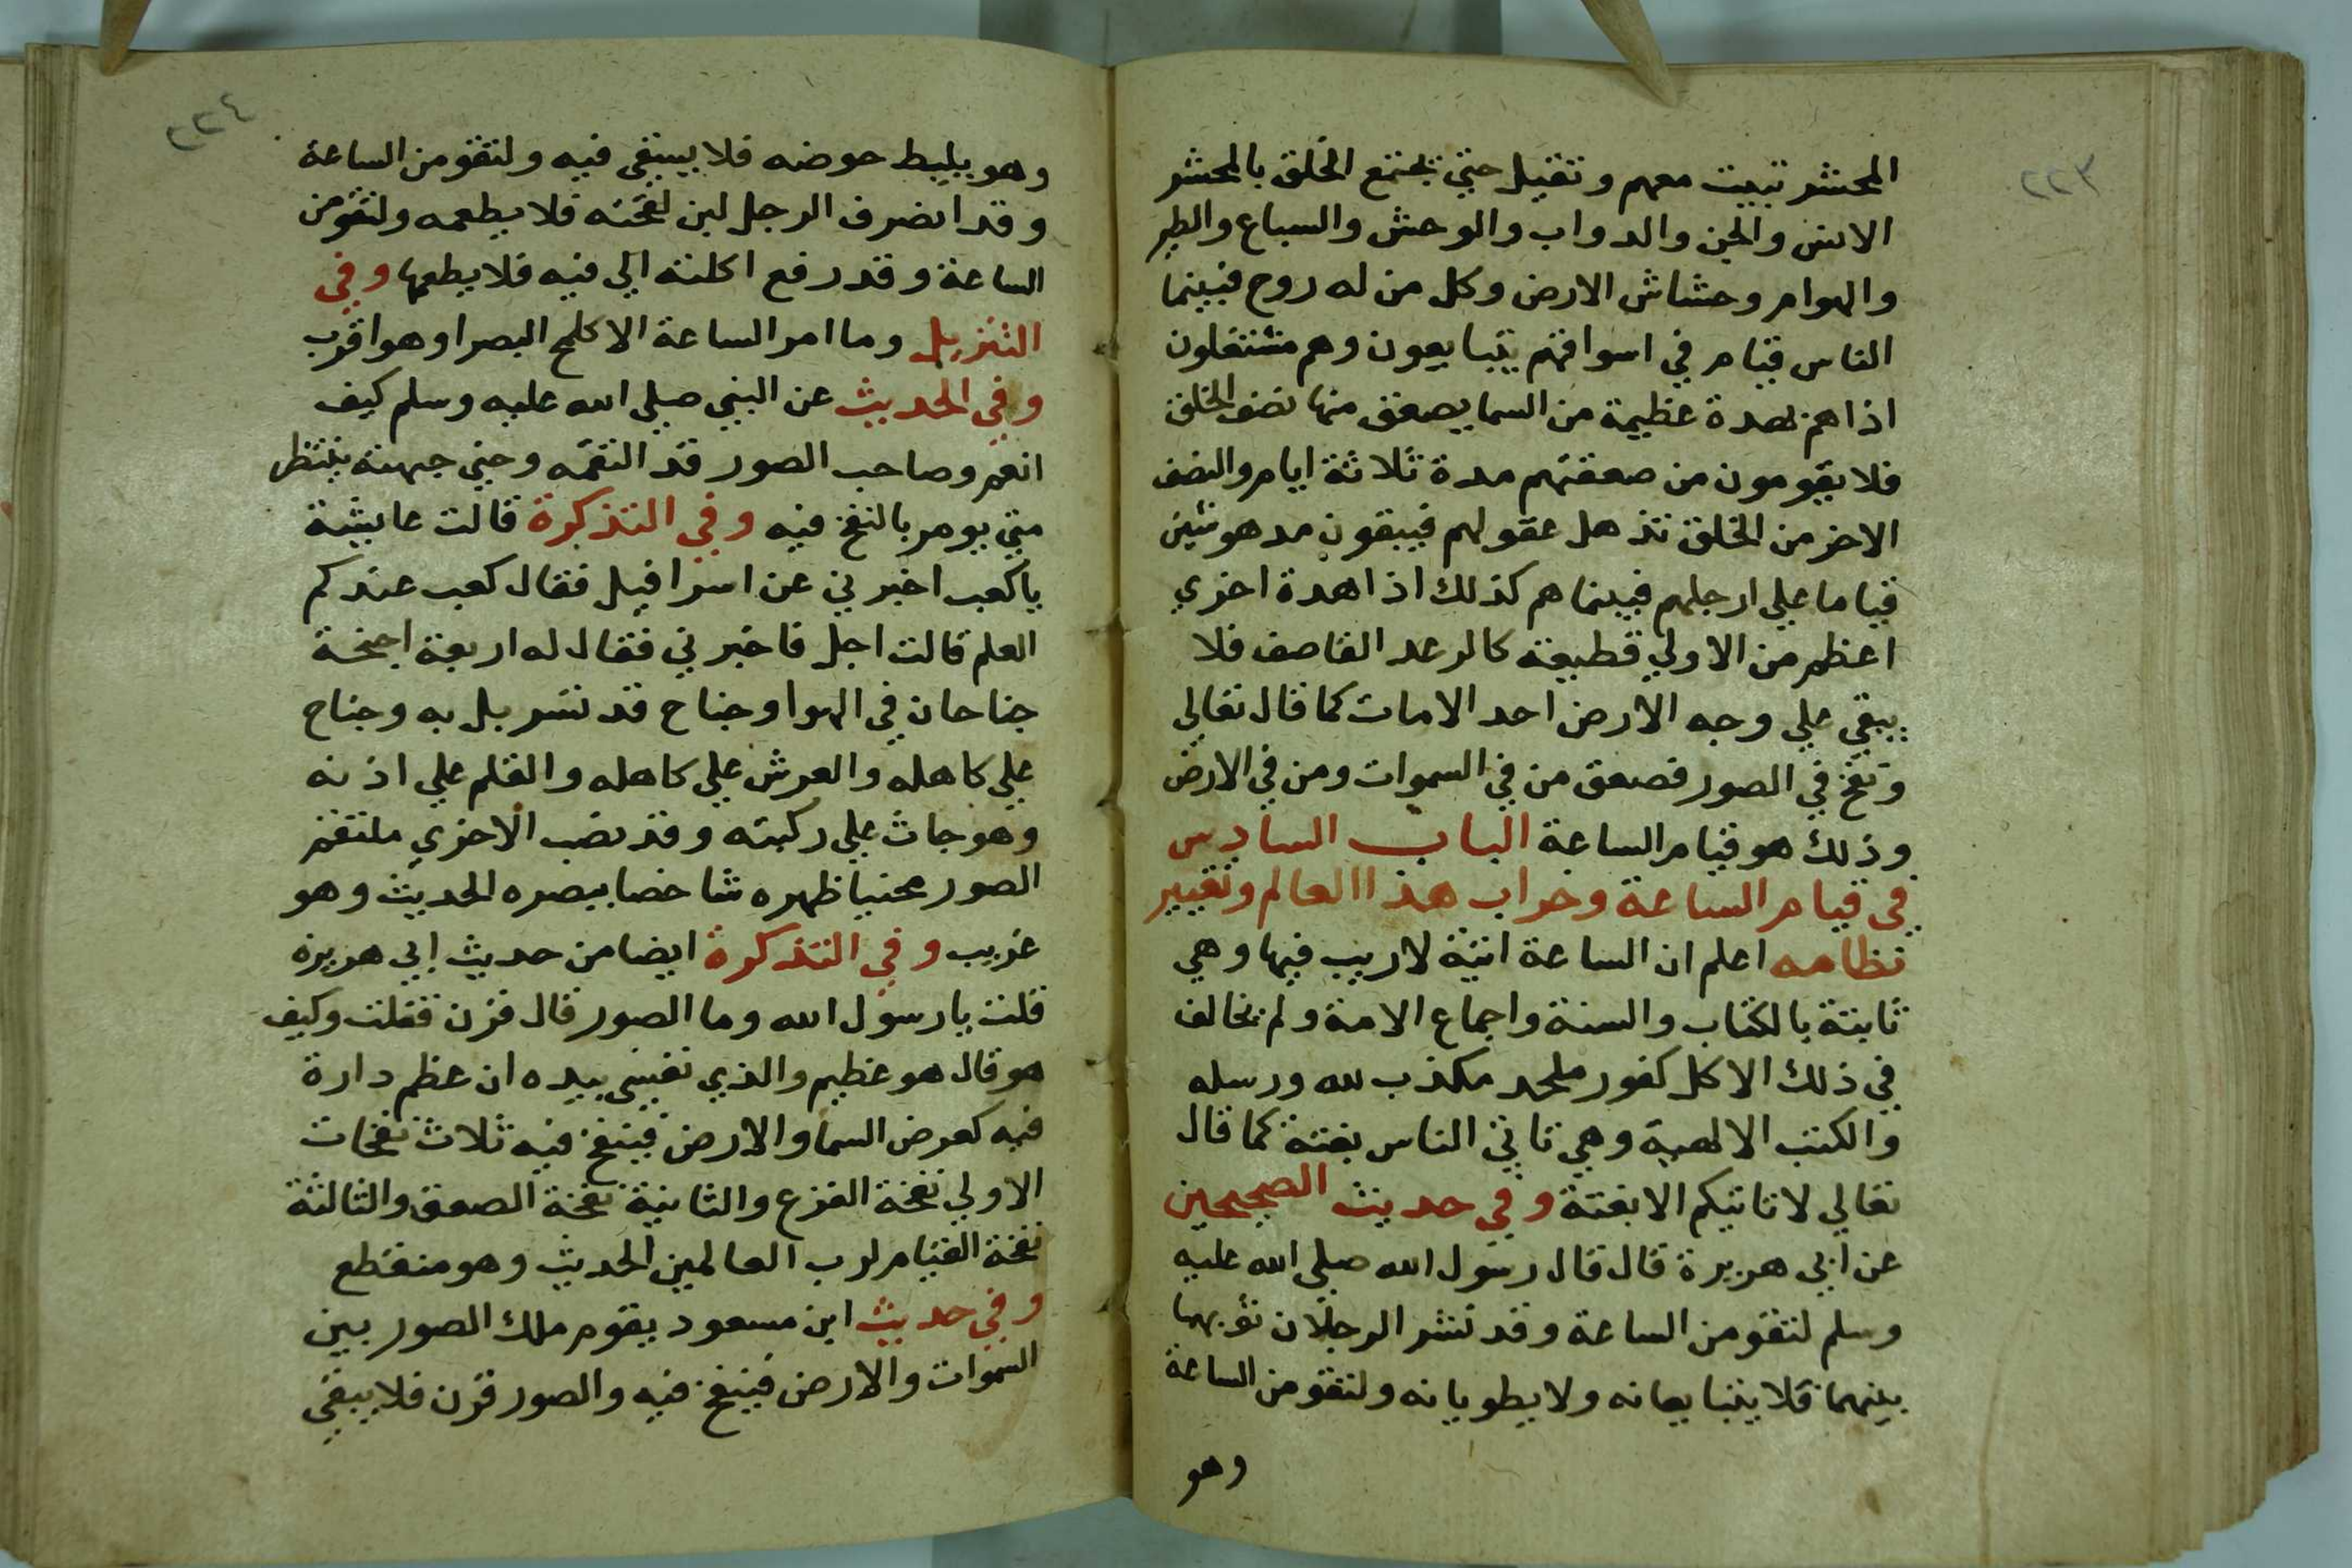 ٢٢٣
المحشر تبيت معهم وتقيل حتي يجتمع الخلق بالمحشر
الانس والجن والدواب والوحش والسباع والطير
والهوام وحشاش الارض وكل من له روح فبينما
الناس قيام في اسواقهم يتبايعون وهم مشتغلون
اذا هم بهدة عظيمة من السما يصعق منها نصف الخلق
فلا يقومون من صعقتهم مدة ثلاثة ايام والنصف
الاخر من الخلق تذهل عقولهم فيبقون مدهوشين
قياما علي ارجلهم فبينما هم كذلك اذا هدة اخري
اعظم من الاولي قطيعة كالرعد القاصف فلا
يبقي علي وجه الارض احد الا مات كما قال تعالي
ونفخ في الصور فصعق من في السموات ومن في الارض
وذلك هو قيام الساعة الباب السادس
في قيام الساعة وخراب هذا العالم وتغيير
نظامه اعلم ان الساعة اتية لا ريب فيها وهي
ثابتة بالكتاب والسنة واجماع الامة ولم يخالف
في ذلك الا كل كفور ملحد مكذب لله ورسله
والكتب الالهية وهي تاتي الناس بغتة كما قال
تعالي لا تاتيكم الا بغتة وفي حديث الصحيحين
عن ابي هريرة قال قال رسول الله صلي الله عليه
وسلم لتقومن الساعة وقد نشر الرجلان ثوبهما
بينهما فلا يتبايعانه ولا يطويانه ولتقومن الساعة
وهو
٢٢٤
وهو يليط حوضه فلا يسقي فيه ولتقومن الساعة
وقد انصرف الرجل لبن لقحته فلا يطعمه ولتقومن
الساعة وقد رفع اكلته الي فيه فلا يطعمها وفي
التنزيل وما امر الساعة الا كلمح البصر او هو اقرب
وفي الحديث عن النبي صلي الله عليه وسلم كيف
انعم وصاحب الصور قد التقمه وحني جبهته ينتظر
متي يومر بالنفخ فيه وفي التذكرة قالت عايشة
يا كعب اخبرني عن اسرافيل فقال كعب عندكم
العلم قالت اجل فاخبرني فقال له اربعة اجنحة
جناحان في الهوا وجناح قد تسربل به وجناح
علي كاهله والعرش علي كاهله والقلم علي اذنه
وهو جاث علي ركبته وقد نصب الاخري ملتقم
الصور محنيا ظهره شاخصا ببصره الحديث وهو
غريب وفي التذكرة ايضا من حديث ابي هريرة
قلت يا رسول الله وما الصور قال قرن فقلت وكيف
هو قال هو عظيم والذي نفسي بيده ان عظم دارة
فيه كعرض السما والارض فينفخ فيه ثلاث نفخات
الاولي نفخة الفزع والثانية نفخة الصعق والثالثة
نفخة القيام لرب العالمين الحديث وهو منقطع
وفي حديث ابن مسعود يقوم ملك الصور بين
السموات والارض فينفخ فيه والصور قرن فلا يبقي